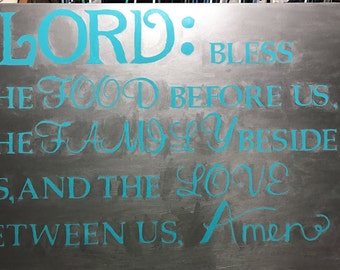 LORD: BLESS
HE FOOD BEFORE US,
HE FAMILY BESIDE
S, AND THE LOVE
ETWEEN US, Amen